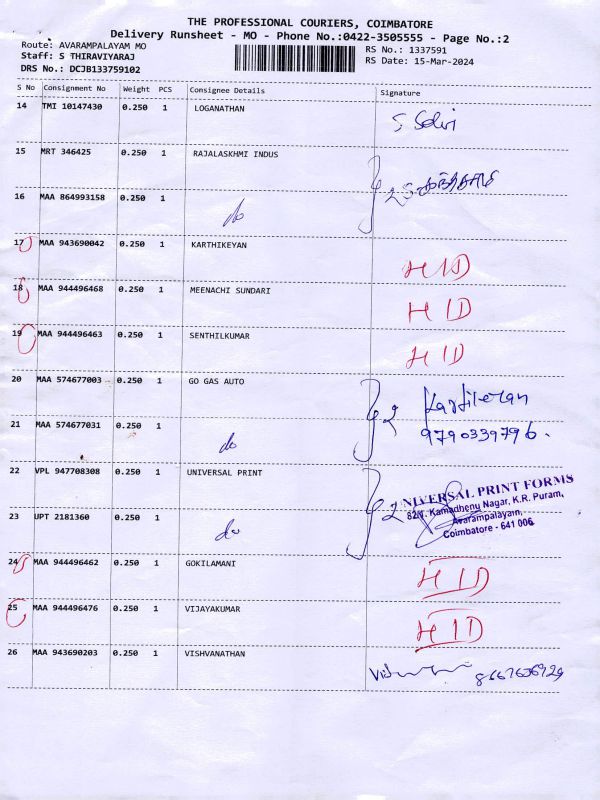 THE PROFESSIONAL COURIERS, COIMBATORE
Delivery Runsheet - MO - Phone No.:0422-3505555 - Page No.:2
Route: AVARAMPALAYAM MO
RS No.: 1337591
Staff: S THIRAVIYARAJ
RS Date: 15-Mar-2024
DRS No.: DCJB133759102
S No Consignment No Weight PCS Consignee Details Signature
14 TMI 10147430 0.250 1 LOGANATHAN S. Selvi
15 MRT 346425 0.250 1 RAJALASKHMI INDUS
16 MAA 864993158 0.250 1 do
17 MAA 943690042 0.250 1 KARTHIKEYAN HID
18 MAA 944496468 0.250 1 MEENACHI SUNDARI HID
19 MAA 944496463 0.250 1 SENTHILKUMAR HID
20 MAA 574677003 0.250 1 GO GAS AUTO
21 MAA 574677031 0.250 1 do 2 9790339796.
22 VPL 947708308 0.250 1 UNIVERSAL PRINT
UNIVERSAL PRINT FORMS
82/1, Kamadhenu Nagar, K.R. Puram,
23 UPT 2181360 0.250 1 do 2 Avarampalayam,
Coimbatore - 641 006.
24 MAA 944496462 0.250 1 GOKILAMANI HID
25 MAA 944496476 0.250 1 VIJAYAKUMAR HID
26 MAA 943690203 0.250 1 VISHVANATHAN